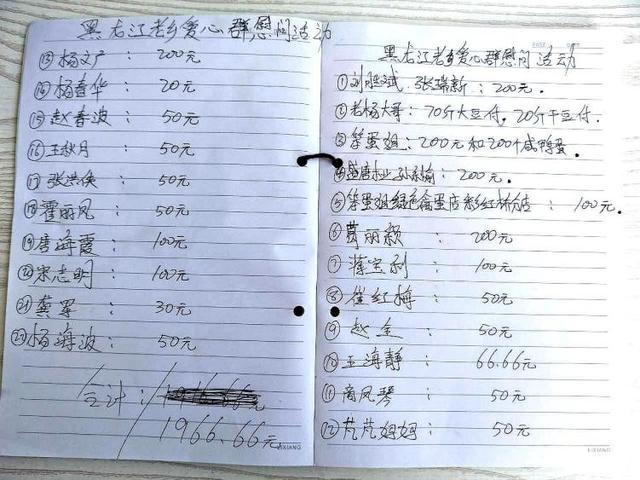 黑龙江老乡爱心群慰问活动
⑬杨文广：200元
⑭杨春华：20元
⑮赵春波：50元
⑯王秋月：50元
⑰张洪侠：50元
⑱霍丽凤：50元
⑲唐海霞：100元
⑳宋志明：100元
㉑龚军：30元
㉒杨海波：50元
合计：
1966.66元
黑龙江老乡爱心群慰问活动
①刘胜斌 张瑞新：200元.
②老杨大哥：70斤大豆付，20斤干豆付.
③笨蛋姐：200元和200个咸鸭蛋.
④盛唐 孙 ：200元.
⑤笨蛋姐绿色禽蛋店彩虹桥分店：100元.
⑥葛丽颖：200元
⑦蒋宝利：100元
⑧崔红梅：50元
⑨赵金：50元
⑩王海静：66.66元
⑪商凤琴：50元
⑫芃芃妈妈：50元